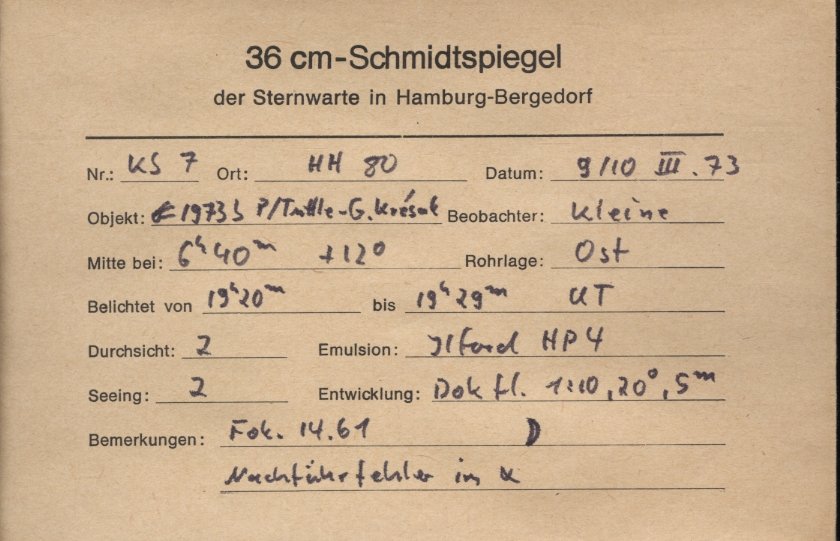 36 cm-Schmidtspiegel
der Sternwarte in Hamburg-Bergedorf
Nr.: KS 7 Ort: HH 80 Datum: 9/10 III. 73
Objekt: 1973b P/Tuttle-G.Kresák Beobachter: Kleine
Mitte bei: 6h 40m +12° Rohrlage: Ost
Belichtet von 19h20m bis 19h29m UT
Durchsicht: 2 Emulsion: Ilford HP4
Seeing: 2 Entwicklung: Dok fl. 1:10, 20°, 5m
Bemerkungen: Fok. 14.61
Nachführfehler in α